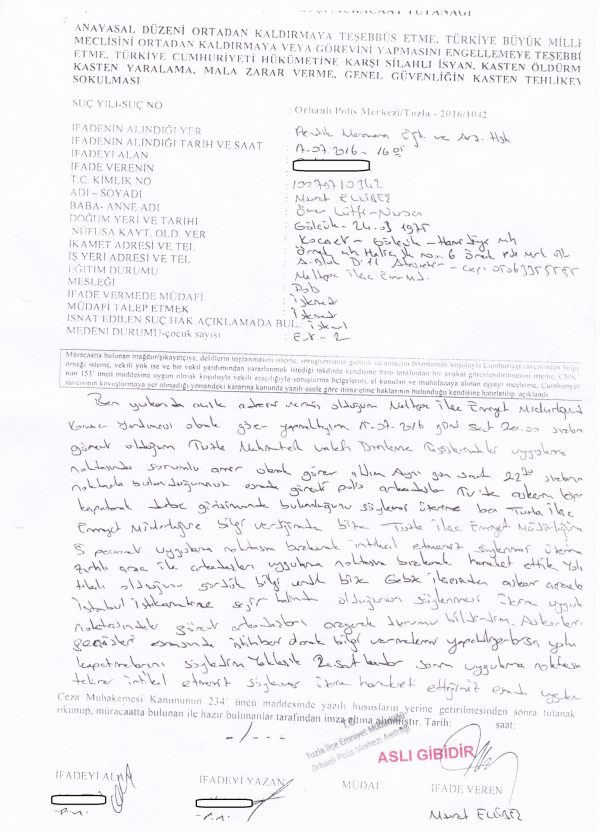 MÜRACAAT TUTANAĞI
ANAYASAL DÜZENİ ORTADAN KALDIRMAYA TEŞEBBÜS ETME, TÜRKİYE BÜYÜK MİLLE
MECLİSİNİ ORTADAN KALDIRMAYA VEYA GÖREVİNİ YAPMASINI ENGELLEMEYE TEŞEBBÜ
ETME, TÜRKİYE CUMHURİYETİ HÜKÜMETİNE KARŞI SİLAHLI İSYAN, KASTEN ÖLDÜRM
KASTEN YARALAMA, MALA ZARAR VERME, GENEL GÜVENLİĞİN KASTEN TEHLİKEY
SOKULMASI
SUÇ YILI-SUÇ NO : Orhanlı Polis Merkezi/Tuzla - 2016/1042
İFADENİN ALINDIĞI YER : Pendik Marmara Eğt. ve Arş. Hst
İFADENİN ALINDIĞI TARİH VE SAAT : 17.07.2016 - 16
İFADEYİ ALAN :
İFADE VERENİN
T.C. KİMLİK NO : 10079710342
ADI – SOYADI : Murat ELLİBEŞ
BABA- ANNE ADI : Ömer Lütfi -
DOĞUM YERİ VE TARİHİ : Gölcük - 24.03 1975
NÜFUSA KAYT. OLD. YER : Kocaeli - Gölcük - Hamidiye mh
İKAMET ADRESİ VE TEL : Örnek mh
İŞ YERİ ADRESİ VE TEL
EĞİTİM DURUMU : Maltepe İlçe Emn. Md.
MESLEĞİ
İFADE VERMEDE MÜDAFİ : İstemed
MÜDAFİ TALEP ETMEK : İstemed
İSNAT EDİLEN SUÇ HAK AÇIKLAMADA BUL.
MEDENİ DURUMU-çocuk sayısı : Evli - 2
Müracaatta bulunan mağdur/şikayetçiye, delillerin toplanmasını isteme, soruşturmanın gizlilik ve amacını bozmamak koşuluyla Cumhuriyet savcısından belge
örneği isteme, vekili yok ise ve bir vekil yardımından yararlanmak istediği takdirde kendisine baro tarafından bir avukat görevlendirilmesini isteme, CMK
nun 153' üncü maddesine uygun olmak koşuluyla vekili aracılığıyla soruşturma belgelerini, el konulan ve muhafazaya alınan eşyayı inceletme, Cumhuriyet
savcısının kovuşturmaya yer olmadığı yönündeki kararına kanunda yazılı usule göre itiraz etme haklarının bulunduğu kendisine hatırlatılıp, açıklandı.
Ben yukarıda açık adresi vermiş olduğum Maltepe İlçe Emniyet Müdürlüğünd
olarak görev yapmaktayım 15.07.2016 günü saat 20.00 sıraları
görevli olduğum Tuzla Mehmetcik vakfı Dinlenme Tesislerindeki uygulama
noktasında sorumlu amir olarak görev aldım Aynı gün saat 22 sıraları
noktada bulunduğumuz esnada görevli polis arkadaşlar Tv'de
kapatarak darbe girişiminde bulunduğunu söylemesi üzerine ben Tuzla İlçe
Emniyet Müdürlüğüne bilgi verdiğimde bize Tuzla İlçe Emniyet Müdürlüğüne
5 personel uygulama noktasını bırakarak intikal etmemiz söylenmesi üzerine
zırhlı araç ile arkadaşları uygulama noktasını bırakarak hareket ettik Yolu
olduğunu gördük bilgi verdik bize Gebze ilçesinden askeri araçla
İstanbul istikametine seyir halinde olduğunun söylenmesi üzerine uygula
noktasındaki görevli arkadaşları arayarak durumu bildirdim. Askerleri
geçişleri esnasında istihbari olarak bilgi vermelerini yapabiliyorlarsa yolu
kapatmalarını söyledim Yaklaşık 2 saat kadar sonra uygulama noktasın
tekrar intikal etmemiz söylenmesi üzerine hareket ettiğimiz esnada uygulama
Ceza Muhakemesi Kanununun 234' üncü maddesinde yazılı hususların yerine getirilmesinden sonra tutanak
okunup, müracaatta bulunan ile hazır bulunanlar tarafından imza altına alınmıştır. Tarih: saat:
-/---
T.C.
Tuzla İlçe Emniyet Müdürlüğü
Orhanlı Polis Merkezi Amirliği
ASLI GİBİDİR
İFADEYİ ALAN İFADEYİ YAZAN MÜDAİ İFADE VEREN
P.M. P.M. Murat ELLİBEŞ